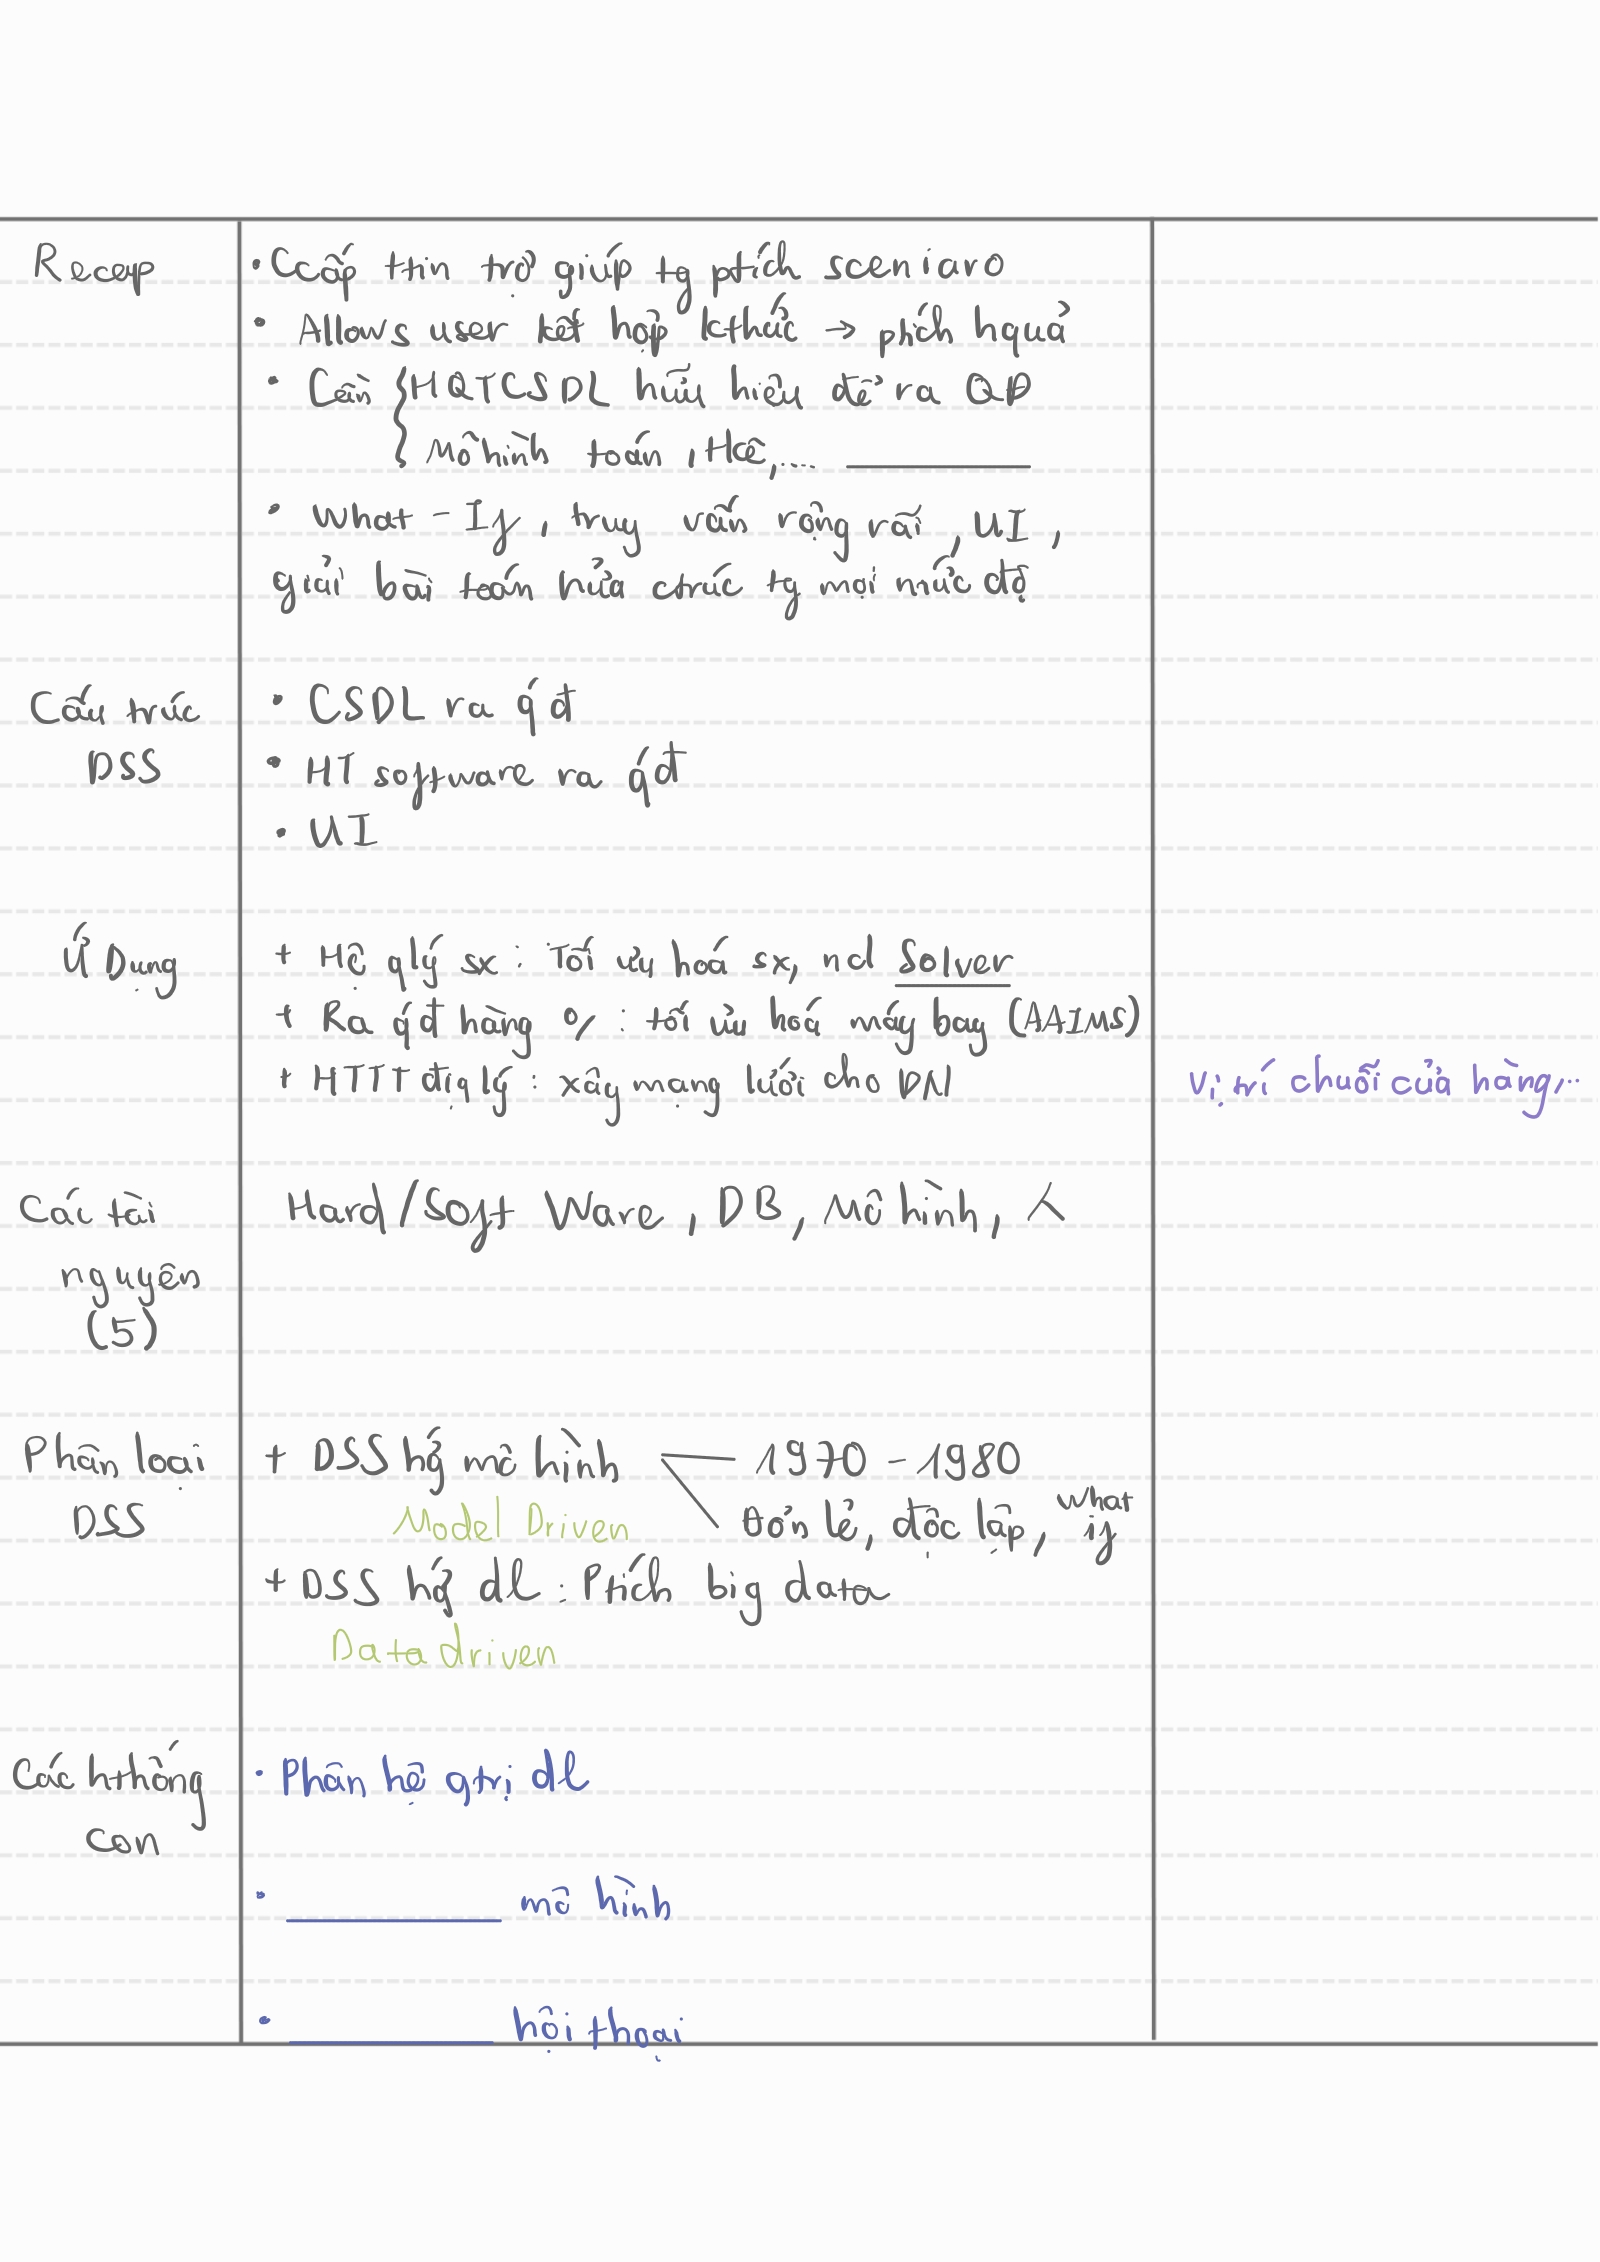 Recap
• Ccấp ttin trợ giúp tg ptích sceniaro
• Allows user kết hợp kthức → phích hquả
• Cần { HQTCSDL hữu hiệu để ra QĐ
Mô hình toán, Hcê,....
• What - If, truy vấn rộng rãi, UI,
giải bài toán nửa ctrúc tg mọi mức độ
Cấu trúc
DSS
• CSDL ra qđ
• HT software ra qđ
• UI
Ứ Dụng
+ Hệ qlý sx : Tối ưu hoá sx, nd Solver
+ Ra qđ hàng % : tối ưu hoá máy bay (AAIMS)
+ HTTT địa lý : xây mạng lưới cho DN
Vị trí chuỗi cửa hàng,...
Các tài
nguyên
(5)
Hard/Soft Ware, DB, Mô hình, 人
Phân loại
DSS
+ DSS hg mô hình
1970 - 1980
Model Driven
Đơn lẻ, độc lập, what if
+ DSS hg dl : Ptích big data
Data driven
Các hthống
con
• Phân hệ qtrị dl
• ______ mô hình
• ______ hội thoại